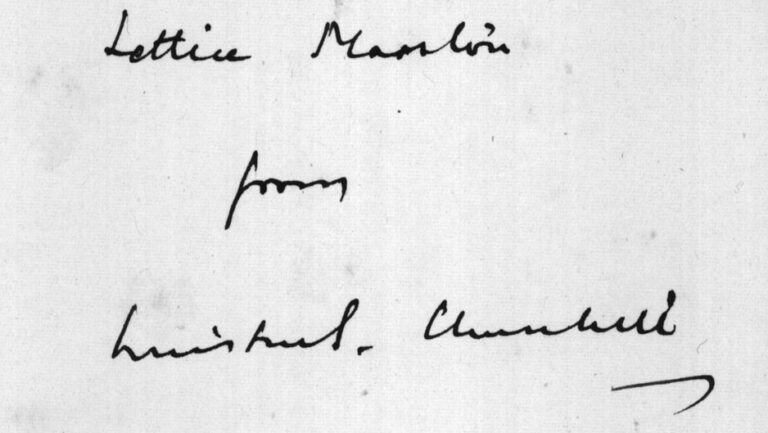 Lettice Marston
from
Winston S. Churchill